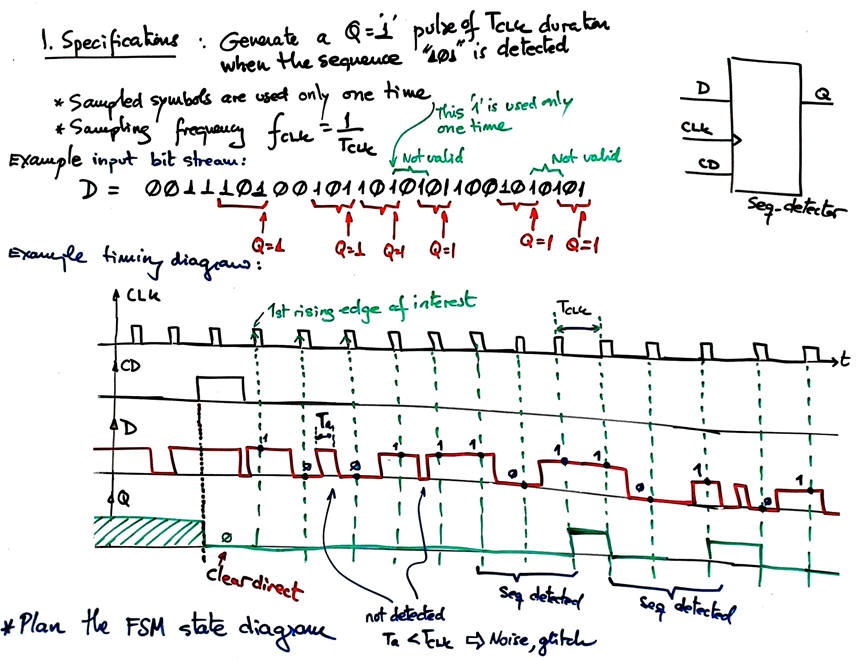 1. Specifications : Generate a Q='1' pulse of TCLK duration
when the sequence "101" is detected
* Sampled symbols are used only one time
* Sampling frequency fCLK = 1/TCLK
This '1' is used only
one time
Example input bit stream:
Not valid
Not valid
D = 00111010010110101011001010101
Q=1 Q=1 Q=1 Q=1 Q=1 Q=1
D
Q
CLK
CD
Seq-detector
Example timing diagram:
CLK
1st rising edge of interest
TCLK
t
CD
D
Ta
1 0 0 1 1 1 0 1 1 0 1 0 1
Q
0
Clear direct
Seq detected
Seq detected
not detected
Ta < TCLK ⇒ Noise, glitch
* Plan the FSM state diagram